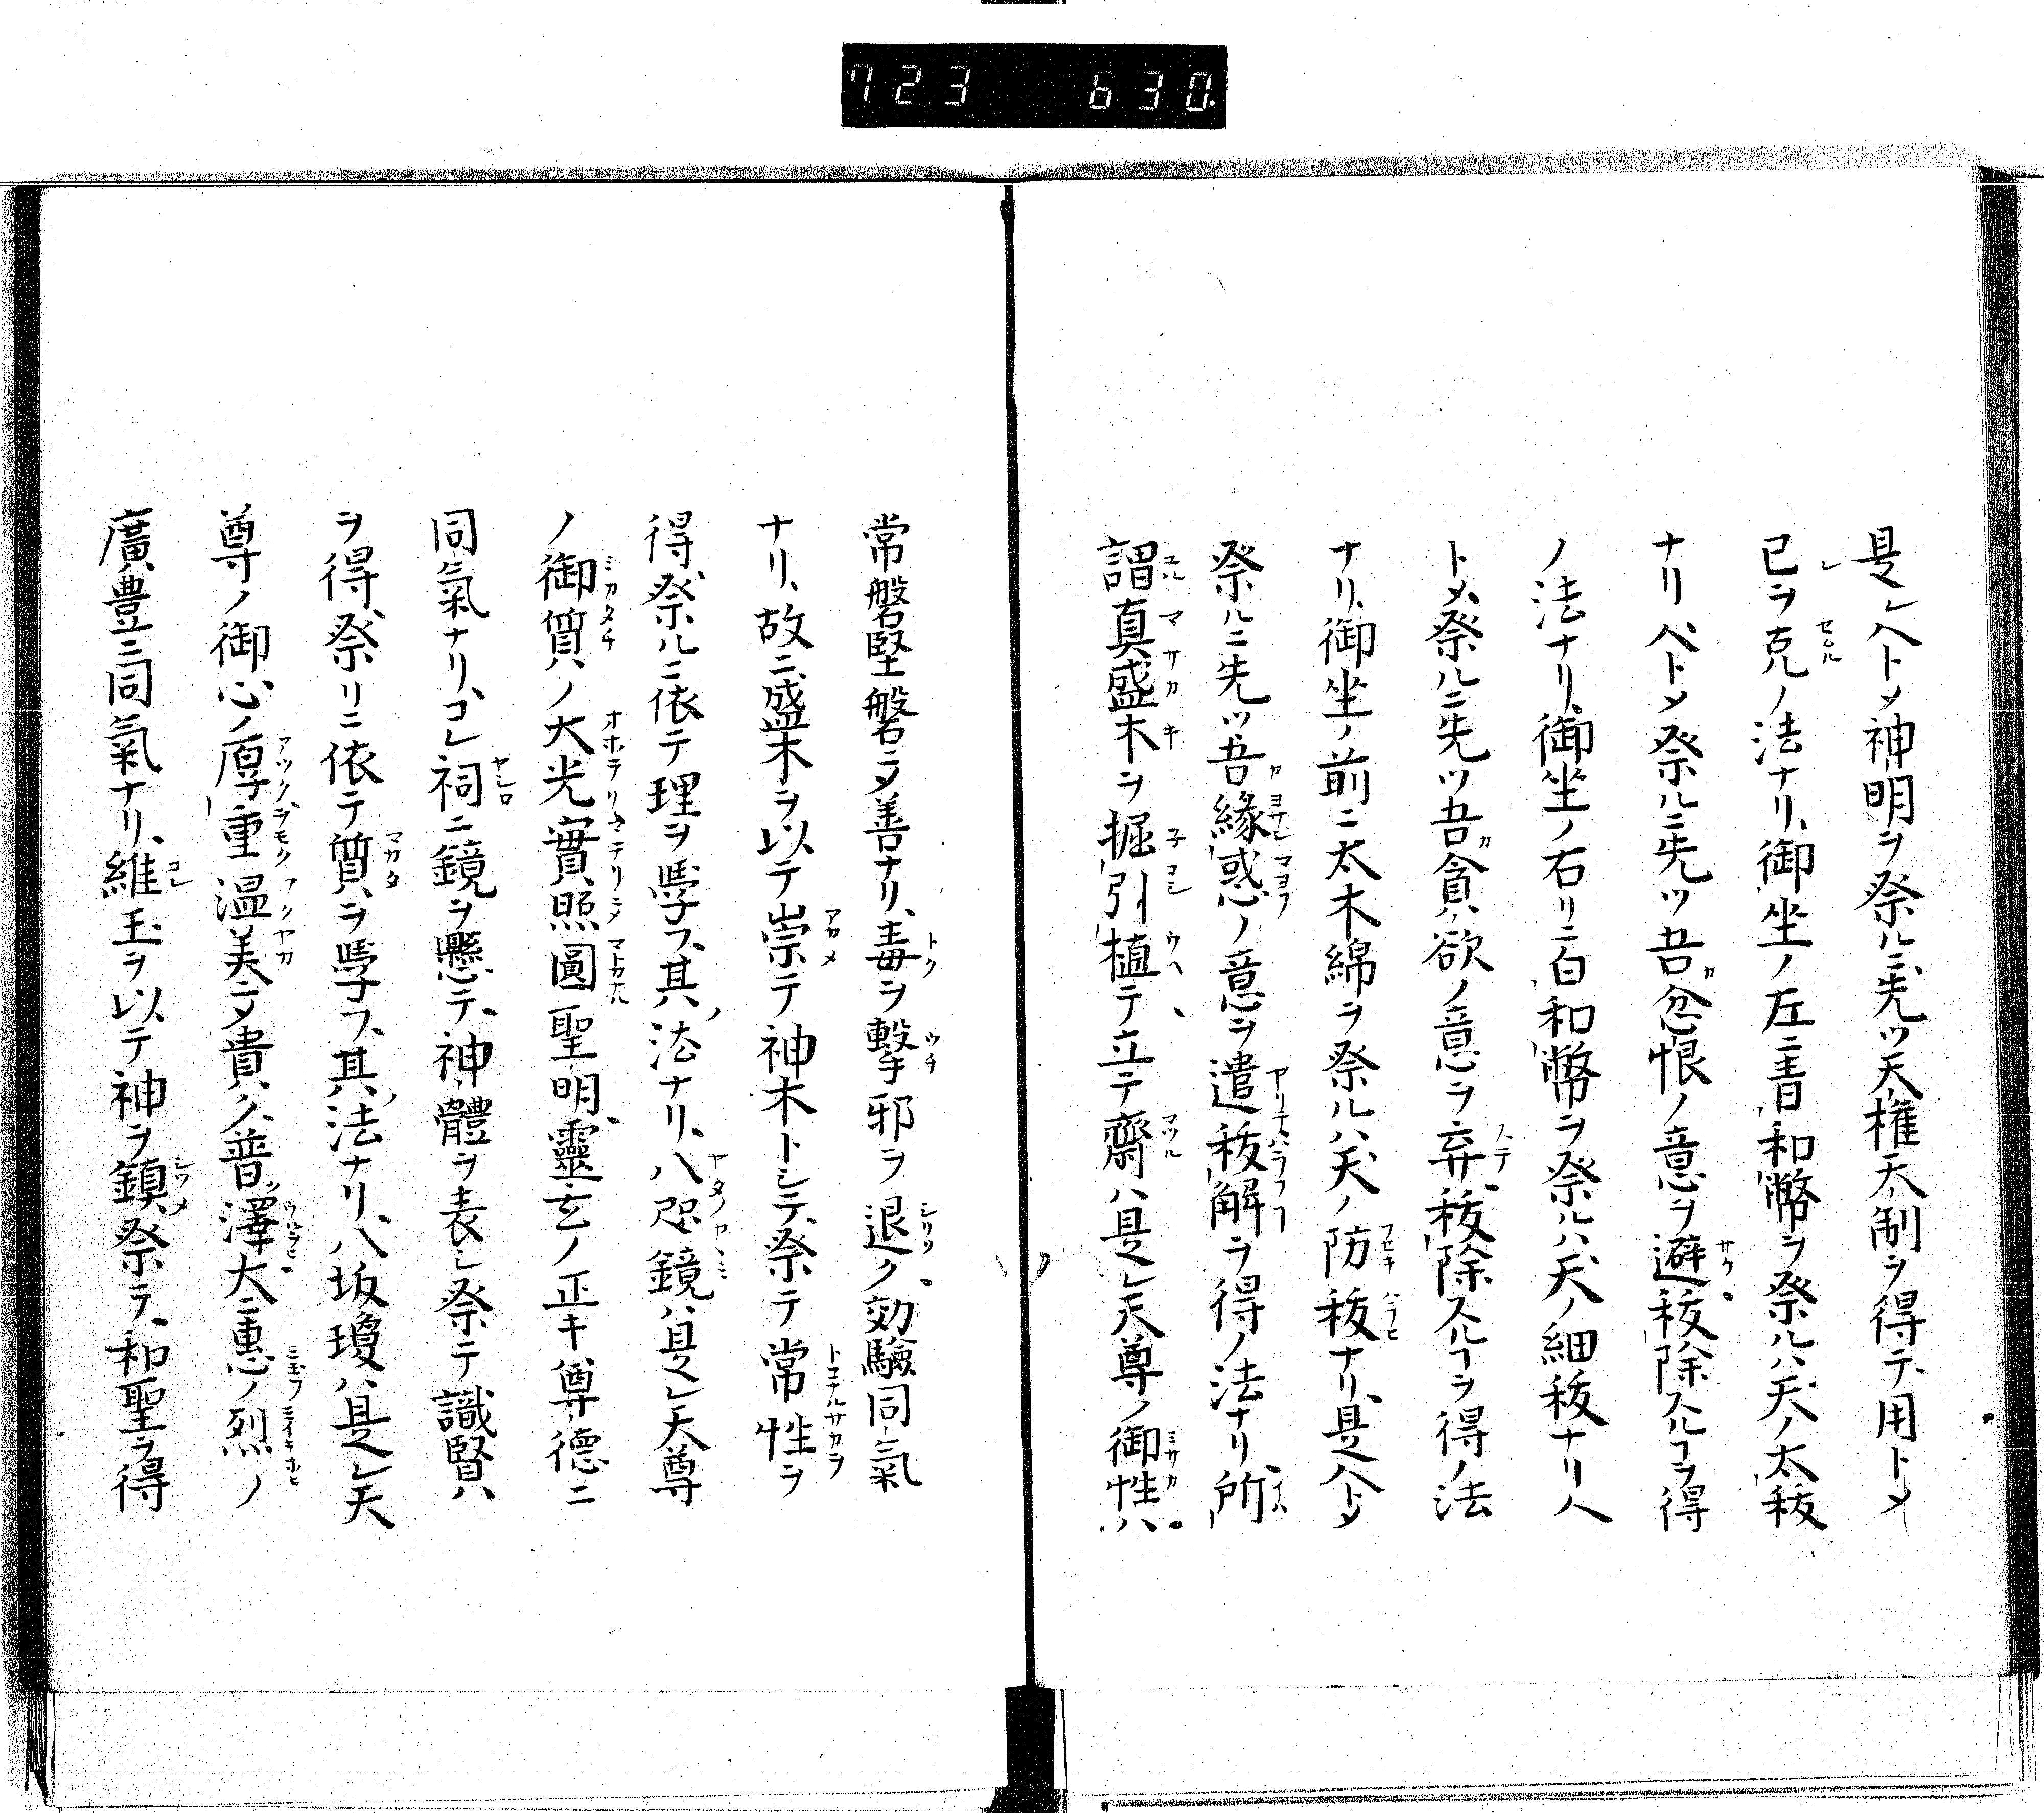 723 630.
是レ人トメ神明ヲ祭ルニ先ツ天権天制ヲ得テ、用トメ
已ヲ克ノ法ナリ、御坐ノ左ニ青和幣ヲ祭ルハ天ノ太秡
ナリ人トメ祭ルニ先ツ吾忿恨ノ意ヲ避秡除スルヿヲ得
ノ法ナリ、御坐ノ右リニ白和幣ヲ祭ルハ天ノ細秡ナリ人
トメ祭ルニ先ツ吾貪欲ノ意ヲ弃秡除スルヿヲ得ノ法
ナリ、御坐ノ前ニ太木綿ヲ祭ルハ天ノ防秡ナリ、是人トメ
祭ルニ先ツ吾縁惑ノ意ヲ遣秡解ヲ得ノ法ナリ所
謂真盛木ヲ掘引植テ立テ齋ハ是レ天尊ノ御性ハ
常磐堅磐ニメ善ナリ、毒ヲ撃邪ヲ退ク効驗同氣
ナリ、故ニ盛木ヲ以テ崇テ神木トシテ祭テ常性ヲ
得、祭ルニ依テ理ヲ學フ、其ノ法ナリ、八咫鏡ハ是レ天尊
ノ御質ハノ大光實照圓聖明、靈玄ノ正キ尊德ニ
同氣ナリ、コレ祠ニ鏡ヲ懸テ神體ヲ表シ祭テ識賢ハ
ヲ得、祭リニ依テ質ヲ學フ、其ノ法ナリ、八坂瓊ハ是レ天
尊ノ御心ノ厚重温美ニメ貴ク普ク澤大ニ惠ノ烈ノ
廣豊ニ同氣ナリ、維玉ヲ以テ神ヲ鎮祭テ、和聖ヲ得